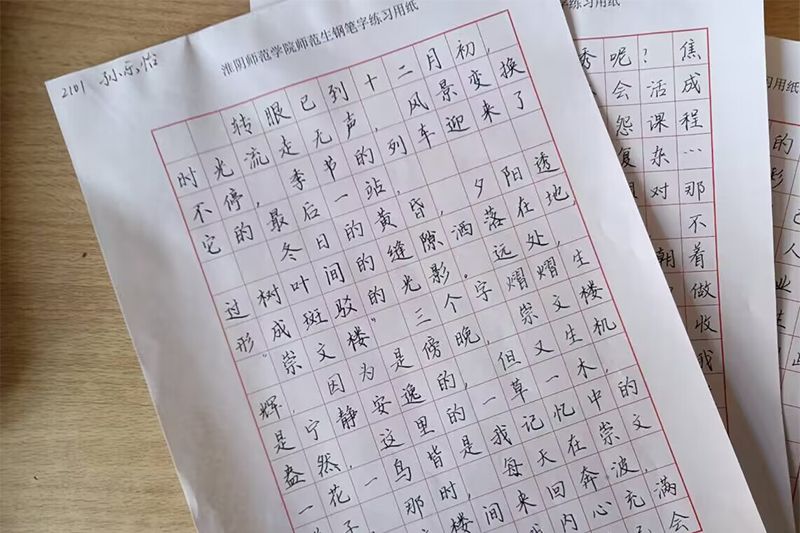 淮阴师范学院师范生钢笔字练习用纸
2101 孙乐怡
转眼已到十二月初，
时光流走无声，风景变换
不停，季节的列车迎来了
它的最后一站。
冬日的黄昏，夕阳透
过树叶间的缝隙洒落在地，
形成斑驳的光影。远处，
“崇文楼”三个字熠熠生
辉，因为是傍晚，崇文楼
是宁静安逸的，但又生机
盎然，这里的一草一木，
一花一鸟皆是我记忆中的
子，那时，每天在崇文
楼间来回奔波，
我内心充满
会
练习用纸
秀呢？焦
会活成
怨课程
复杂…
对那
不
着
朝
做
收
我
习用纸
的
影
己
人
业